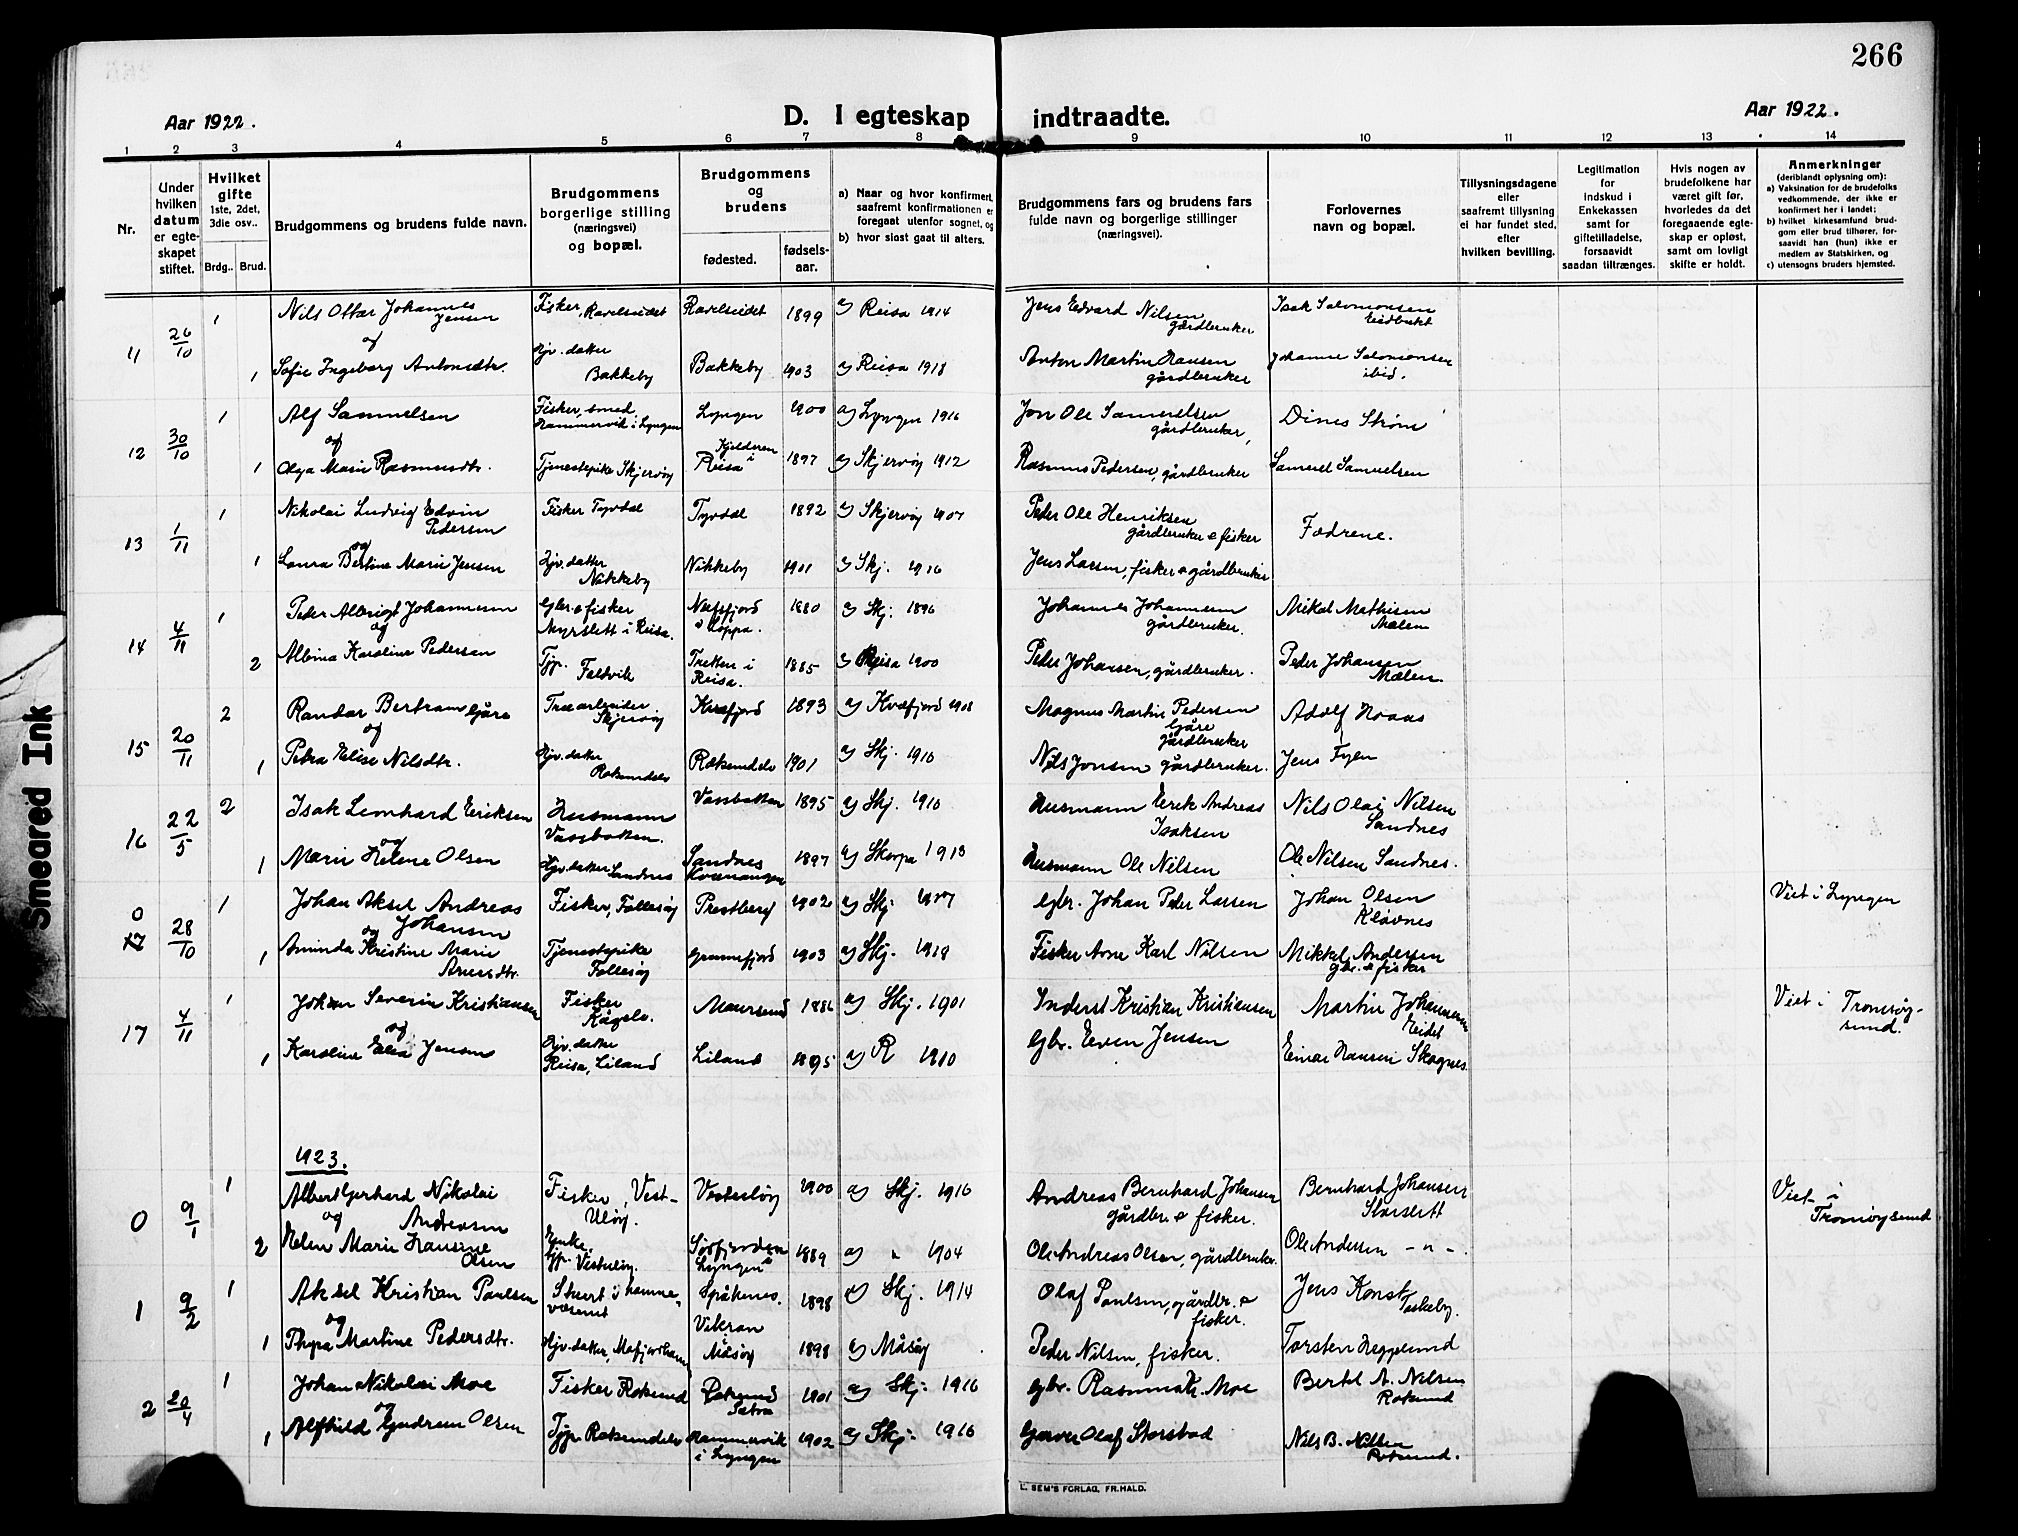 266
Aar 1922.
D. I egteskap indtraadte.
Aar 1922.
1 2 3 4 5 6 7 8 9 10 11 12 13 14
Nr.
Under hvilken datum er egteskapet stiftet.
Hvilket gifte 1ste, 2det, 3die osv..
Brdg.. Brud.
Brudgommens og brudens fulde navn.
Brudgommens borgerlige stilling (næringsvei) og bopæl.
Brudgommens og brudens
fødested. fødsels-aar.
a) Naar og hvor konfirmert, saafremt konfirmationen er foregaat utenfor sognet, og
b) hvor sidst gaat til alters.
Brudgommens fars og brudens fars fulde navn og borgerlige stillinger (næringsvei).
Forlovernes navn og bopæl.
Tillysningsdagene eller saafremt tillysning ei har fundet sted, efter hvilken bevilling.
Legitimation for indskud i Enkekassen samt for giftetilladelse, forsaavidt saadan tiltrænges.
Hvis nogen av brudefolkene har været gift før, hvorledes da det foregaaende egteskap er opløst, samt om lovligt skifte er holdt.
Anmerkninger (deriblandt oplysning om): a) Vaksination for de brudefolks vedkommende, der ikke er konfirmert her i landet; b) hvilket kirkesamfund brudgom eller brud tilhører, forsaavidt han (hun) ikke er medlem av Statskirken, og c) utensogns bruders hjemsted.
11 26/10 1 Nils Ottar Johannes Jensen Fisker, Ravelseidet Ravelseidet 1899 a) Reisa 1914 Jens Edvard Nilsen gårdbruker Isak Salomonsen Eidbukt
og
1 Sofie Ingeborg Antonsdtr. Hjv. datter Bakkeby Bakkeby 1903 a) Reisa 1918 Anton Martin Hansen gårdbruker Johannes Salomonsen ibid.
12 30/10 1 Alf Samuelsen Fisker, smed Hammervik i Lyngen Lyngen 1900 a) Lyngen 1916 Jon Ole Samuelsen gårdbruker, Dines Strøm
og
1 Olga Marie Rasmusdtr. Tjenestepike Skjervøy Kjelderen i Reisa 1897 a) Skjervøy 1912 Rasmus Pedersen, gårdbruker Samuel Samuelsen
13 1/11 1 Nikolai Ludvig Edvin Pedersen Fisker Tyvdal Tyvdal 1892 a) Skjervøy 1907 Peder Ole Henriksen gårdbruker & fisker Fædrene.
og
1 Laura Bertine Marie Jensen Hjv. datter Nikkeby Nikkeby 1901 a) Skj. 1916 Jens Larsen, fisker & gårdbruker
14 4/11 1 Peder Albrigt Johannesen Gbr. & fisker Myrslett i Reisa. Nuvsfjord i Loppa. 1880 a) Skj. 1896 Johannes Johannesen gårdbruker. Mikal Mathisen Mælen
og
2 Albina Karoline Pedersen Tjp. Faldvik Tretten i Reisa. 1885 a) Reisa 1900 Peder Johansen, gårdbruker. Peder Johansen Mælen.
15 20/11 2 Randar Bertram Gåre Træarbeider Skjervøy Kvæfjord 1893 a) Kvæfjord 1908 Magnus Martin Pedersen Gåre gårdbruker Adolf Hoaas
og
1 Petra Elise Nilsdtr. Hjv. datter Roksundelv Roksundelv 1901 a) Skj. 1916 Nils Jonsen gårdbruker. Jens Fyen
16 22/5 2 Isak Leonhard Eriksen Husmann Vassbotten. Vassbotten 1895 a) Skj. 1910 Husmann Erik Andreas Isaksen Nils Olai Nilsen Sandnes
og
1 Marie Helene Olsen Hjv. datter Sandnes Sandnes Kvænangen 1897 a) Skorpa 1913 Husmann Ole Nilsen Ole Nilsen Sandnes.
0 28/10 1 Johan Aksel Andreas Johansen Fisker, Follesøy Prestberg 1902 a) Skj. 1917 Gbr. Johan Peder Larsen Johan Olsen Kløvnes Viet i Lyngen
og
1 Aminda Kristine Marie Arnesdtr. Tjenestepike Follesøy Grunnfjord 1903 a) Skj. 1918 Fisker Arne Karl Nilsen Mikkel Andersen gbr. & fisker
17 4/11 1 Johan Severin Kristiansen Fisker Kågelv. Maursund 1886 a) Skj. 1901 Inderst Kristian Kristiansen Martin Johannesen Eidet Viet i Tromsøysund.
og
1 Karoline Elea Jensen Hjv. datter Reisa, Liland Liland 1895 a) R 1910 Gbr. Even Jensen Einar Hansen Skognes.
1923.
0 9/1 1 Albert Gerhard Nikolai Andreasen Fisker, Vest-Uløy. Vesteuløy 1900 a) Skj. 1916 Andreas Bernhard Johansen gårdbr. & fisker. Bernhard Johansen Storslett Viet i Tromsøysund
og
2 Helen Marie Hansine Olsen Enke, tjp. Vesteuløy. Sørfjorden i Lyngen 1889 a) " 1904 Ole Andreas Olsen, gårdbruker. Ole Andersen - " -
1 9/2 1 Aksel Kristian Paulsen Stuert i hammevæsenet Spåkenes. 1898 a) Skj. 1914 Olaf Paulsen, gårdbr. & fisker. Jens Konst Taskeby.
og
1 Thyra Martine Pedersdtr. Hjv. datter, Mefjordhamn Vikran i Måsøy 1898 a) Måsøy Peder Nilsen, fisker. Torsten Heggelund
2 20/4 1 Johan Nikolai Moe Fisker Roksund Roksund Sætra 1901 a) Skj. 1916 Gbr. Rasmus K. Moe Bertel A. Nilsen Roksund
og
1 Alfhild Gudrun Olsen Tjp. Roksundelv Hammervik i Lyngen 1902 a) Skj. 1916 Garver Olaf Storsbad Nils B. Nilsen Roksund.
L. SEM'S FORLAG, FR.HALD.
Smeared Ink